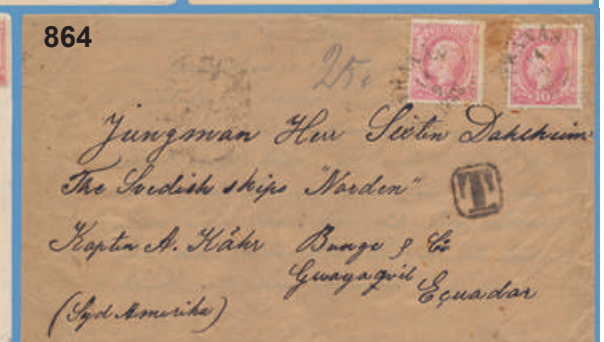 864
25.
SVERIGE
TRANÅS
10
Jungman Herr Sixten Dahlheim
The Svedish skips "Norden"
T
Kapten A. Kåhr Bunge & Co
Guayaqvil
Ecuador
(Syd Amerika)